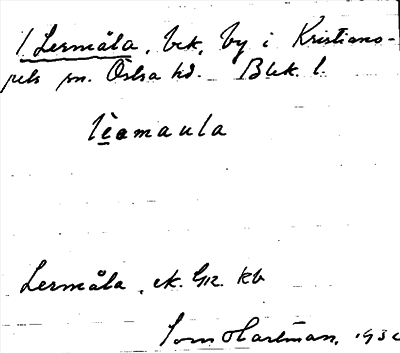 1 Lermåla, bek. by i Kristiano-
pels sn. Östra hd. Blek. l.
lèomaula
Lermåla, ek. Gr. kb
Torn Hartman, 193